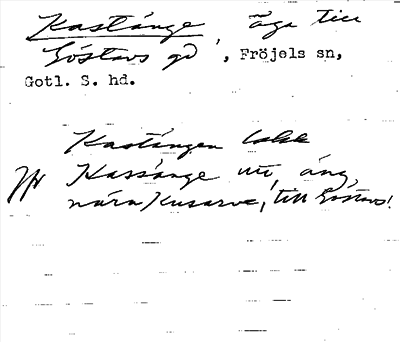 Kastänge, äga till
Göstavs gd, Fröjels sn,
Gotl. S. hd.
Kastängen lokk
Kassänge utt, äng,
nära Kusarve, till Göstavs!